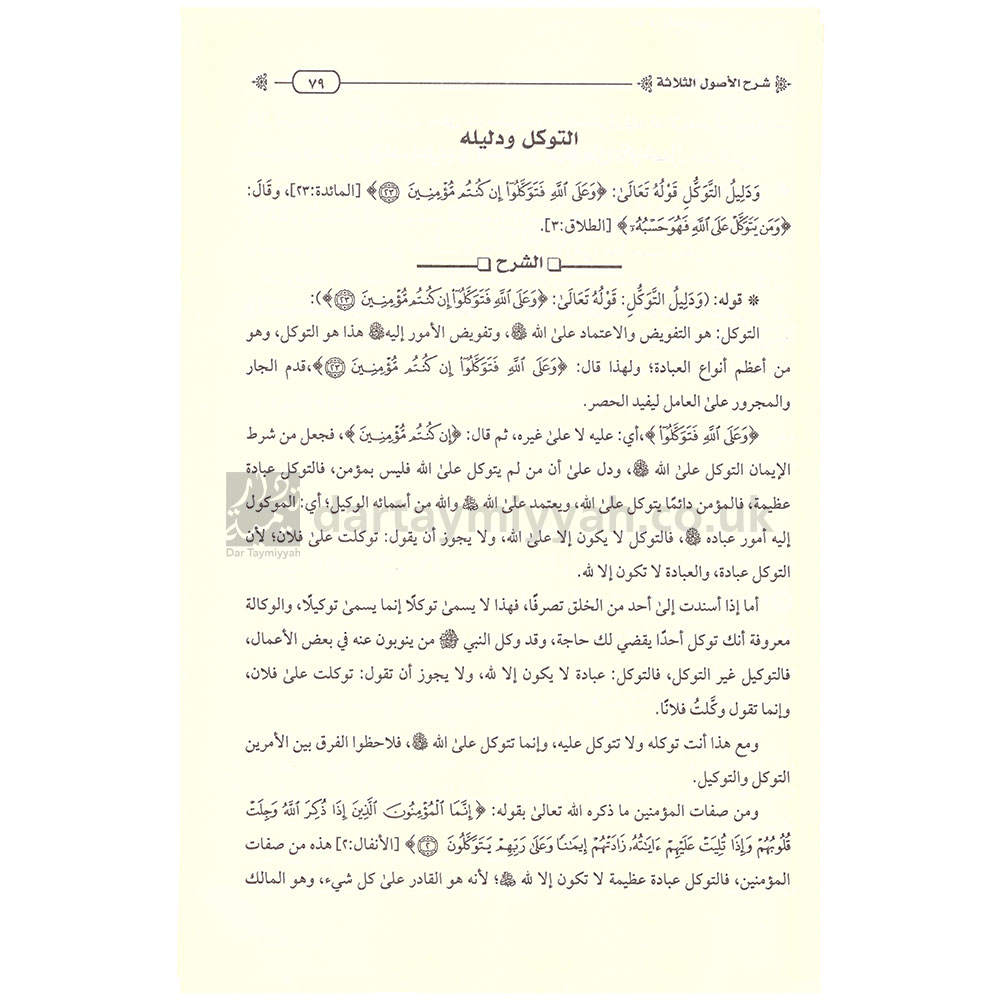 شرح الأصول الثلاثة
٧٩
التوكل ودليله
وَدَلِيلُ التَّوَكُّلِ قَوْلُهُ تَعَالَىٰ: ﴿وَعَلَى ٱللَّهِ فَتَوَكَّلُوٓا۟ إِن كُنتُم مُّؤْمِنِينَ ٢٣﴾ [المائدة:٢٣]، وقَالَ:
﴿وَمَن يَتَوَكَّلْ عَلَى ٱللَّهِ فَهُوَ حَسْبُهُۥٓ﴾ [الطلاق:٣].
الشرح
* قوله: (وَدَلِيلُ التَّوَكُّلِ: قَوْلُهُ تَعَالَىٰ: ﴿وَعَلَى ٱللَّهِ فَتَوَكَّلُوٓا۟ إِن كُنتُم مُّؤْمِنِينَ ٢٣﴾):
التوكل: هو التفويض والاعتماد علىٰ الله ﷻ، وتفويض الأمور إليه ﷻ هذا هو التوكل، وهو
من أعظم أنواع العبادة؛ ولهذا قال: ﴿وَعَلَى ٱللَّهِ فَتَوَكَّلُوٓا۟ إِن كُنتُم مُّؤْمِنِينَ ٢٣﴾،قدم الجار
والمجرور علىٰ العامل ليفيد الحصر.
﴿وَعَلَى ٱللَّهِ فَتَوَكَّلُوٓا۟﴾،أي: عليه لا علىٰ غيره، ثم قال: ﴿إِن كُنتُم مُّؤْمِنِينَ﴾، فجعل من شرط
الإيمان التوكل علىٰ الله ﷻ، ودل علىٰ أن من لم يتوكل علىٰ الله فليس بمؤمن، فالتوكل عبادة
عظيمة، فالمؤمن دائمًا يتوكل علىٰ الله، ويعتمد علىٰ الله ﷻ والله من أسمائه الوكيل؛ أي: الموكول
إليه أمور عباده ﷻ، فالتوكل لا يكون إلا علىٰ الله، ولا يجوز أن يقول: توكلت علىٰ فلان؛ لأن
التوكل عبادة، والعبادة لا تكون إلا لله.
أما إذا أسندت إلىٰ أحد من الخلق تصرفًا، فهذا لا يسمىٰ توكلًا إنما يسمىٰ توكيلًا، والوكالة
معروفة أنك توكل أحدًا يقضي لك حاجة، وقد وكل النبي ﷺ من ينوبون عنه في بعض الأعمال،
فالتوكيل غير التوكل، فالتوكل: عبادة لا يكون إلا لله، ولا يجوز أن تقول: توكلت علىٰ فلان،
وإنما تقول وكَّلتُ فلانًا.
ومع هذا أنت توكله ولا تتوكل عليه، وإنما تتوكل علىٰ الله ﷻ، فلاحظوا الفرق بين الأمرين
التوكل والتوكيل.
ومن صفات المؤمنين ما ذكره الله تعالىٰ بقوله: ﴿إِنَّمَا ٱلْمُؤْمِنُونَ ٱلَّذِينَ إِذَا ذُكِرَ ٱللَّهُ وَجِلَتْ
قُلُوبُهُمْ وَإِذَا تُلِيَتْ عَلَيْهِمْ ءَايَٰتُهُۥ زَادَتْهُمْ إِيمَٰنًا وَعَلَىٰ رَبِّهِمْ يَتَوَكَّلُونَ ٢﴾ [الأنفال:٢] هذه من صفات
المؤمنين، فالتوكل عبادة عظيمة لا تكون إلا لله ﷻ؛ لأنه هو القادر علىٰ كل شيء، وهو المالك
Dar Taymiyyah
dartaymiyyah.co.uk